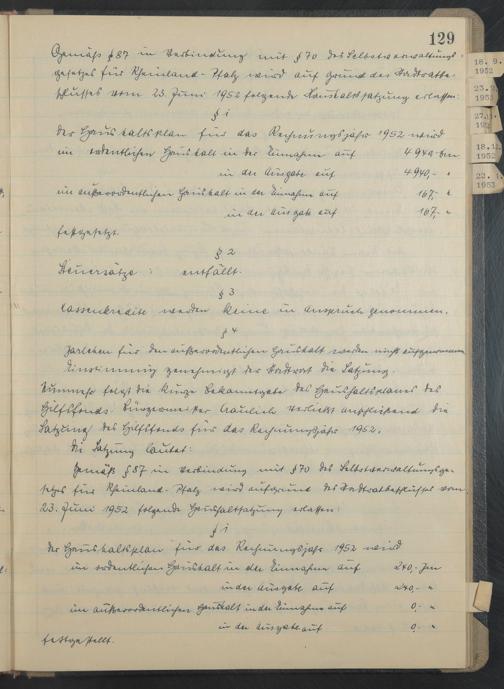 129
18. 9.
1952
23.
1952
27.
18.11.
1952
22. 1.
1953
Gemäß § 87 in Verbindung mit § 70 des Selbstverwaltungs-
gesetzes für Rheinland-Pfalz wird auf Grund des Stadtratbe-
schlusses vom 23. Juni 1952 folgende Haushaltssatzung erlassen:
§ 1
Der Haushaltsplan für das Rechnungsjahr 1952 wird
im ordentlichen Haushalt in der Einnahme auf 4 940.-
in der Ausgabe auf 4 940,- "
im außerordentlichen Haushalt in der Einnahme auf 167,- "
in der Ausgabe auf 167,- "
festgesetzt.
§ 2
Steuersätze: entfällt.
§ 3
Kassenkredite werden keine in Anspruch genommen.
§ 4
Darlehen für den außerordentlichen Haushalt werden nicht aufgenommen
Einstimmig genehmigt der Stadtrat die Satzung.
Nunmehr folgt die kurze Bekanntgabe des Haushaltsplanes des
Hilfsfonds. Bürgermeister verliest anschließend die
Satzung des Hilfsfonds für das Rechnungsjahr 1952.
Die Satzung lautet:
Gemäß § 87 in Verbindung mit § 70 des Selbstverwaltungsge-
setzes für Rheinland-Pfalz wird aufgrund des Stadtratbeschlusses vom
23. Juni 1952 folgende Haushaltsatzung erlassen:
§ 1
Der Haushaltsplan für das Rechnungsjahr 1952 wird
im ordentlichen Haushalt in der Einnahme auf 240,-
in der Ausgabe auf 240,- "
im außerordentlichen Haushalt in der Einnahme auf 0,- "
in der Ausgabe auf 0,- "
festgestellt.